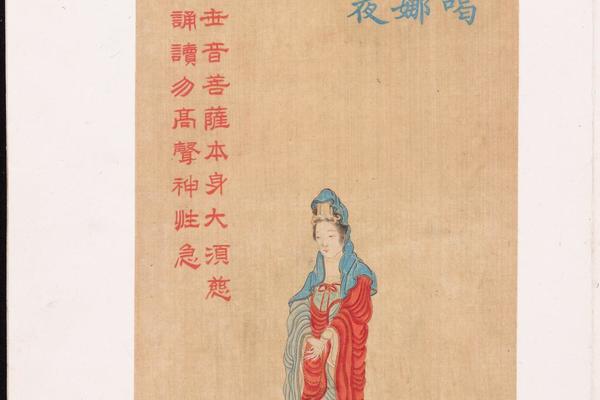 喝娜夜
世音菩薩本身大須慈
誦讀勿髙聲神性急